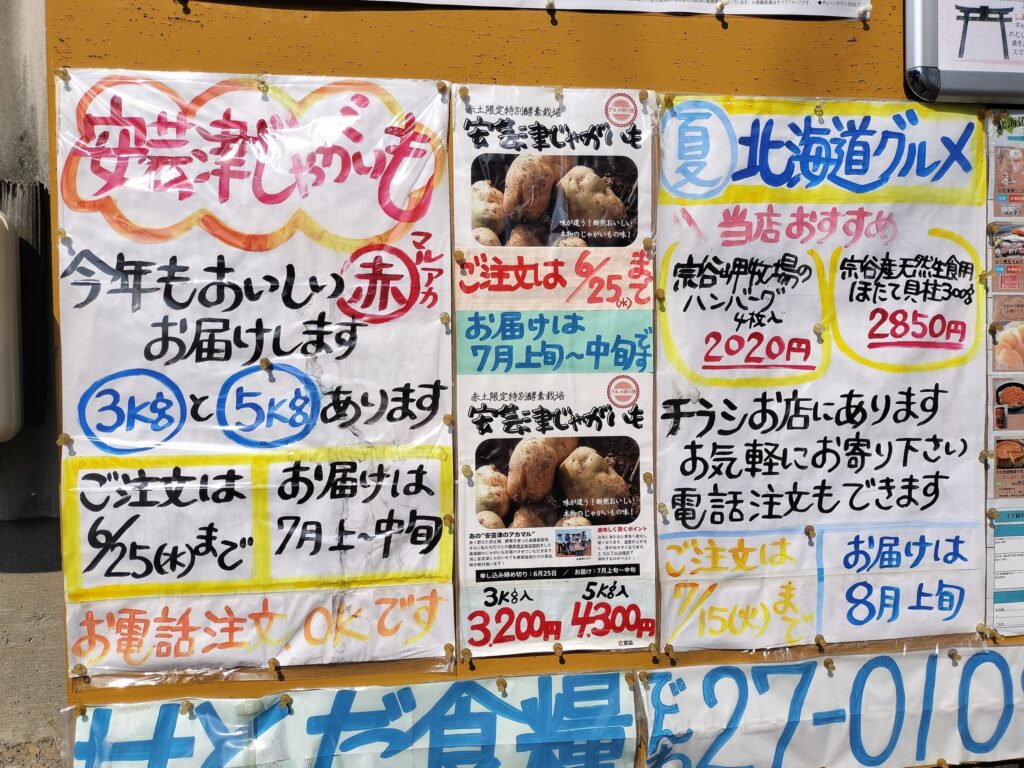 安芸津じゃがいも
今年もおいしい赤
マルアカ
お届けします
3Kgと5Kgあります
ご注文は
6/25(水)まで
お届けは
7月上〜中旬
お電話注文、OKです
赤土限定特別酵素栽培
安芸津じゃがいも
味が違う！断然おいしい
本物のじゃがいもの味！
ご注文は6/25(水)まで
お届けは
7月上旬〜中旬です
赤土限定特別酵素栽培
安芸津じゃがいも
味が違う！断然おいしい
本物のじゃがいもの味！
あの"安芸津のアカマル"
美味しく頂くポイント
申し込み締め切り：6月25日 / お届け：7月上旬〜中旬
3Kg入
3,200円
5Kg入
4300円
夏 北海道グルメ
当店おすすめ
宗谷岬牧場の
ハンバーグ
4枚入
2020円
宗谷産天然生食用
ほたて貝柱300g
2850円
チラシお店にあります
お気軽にお寄り下さい
電話注文もできます
ご注文は
7/15(火)まで
お届けは
8月上旬
せとだ食糧
でんわ27-010